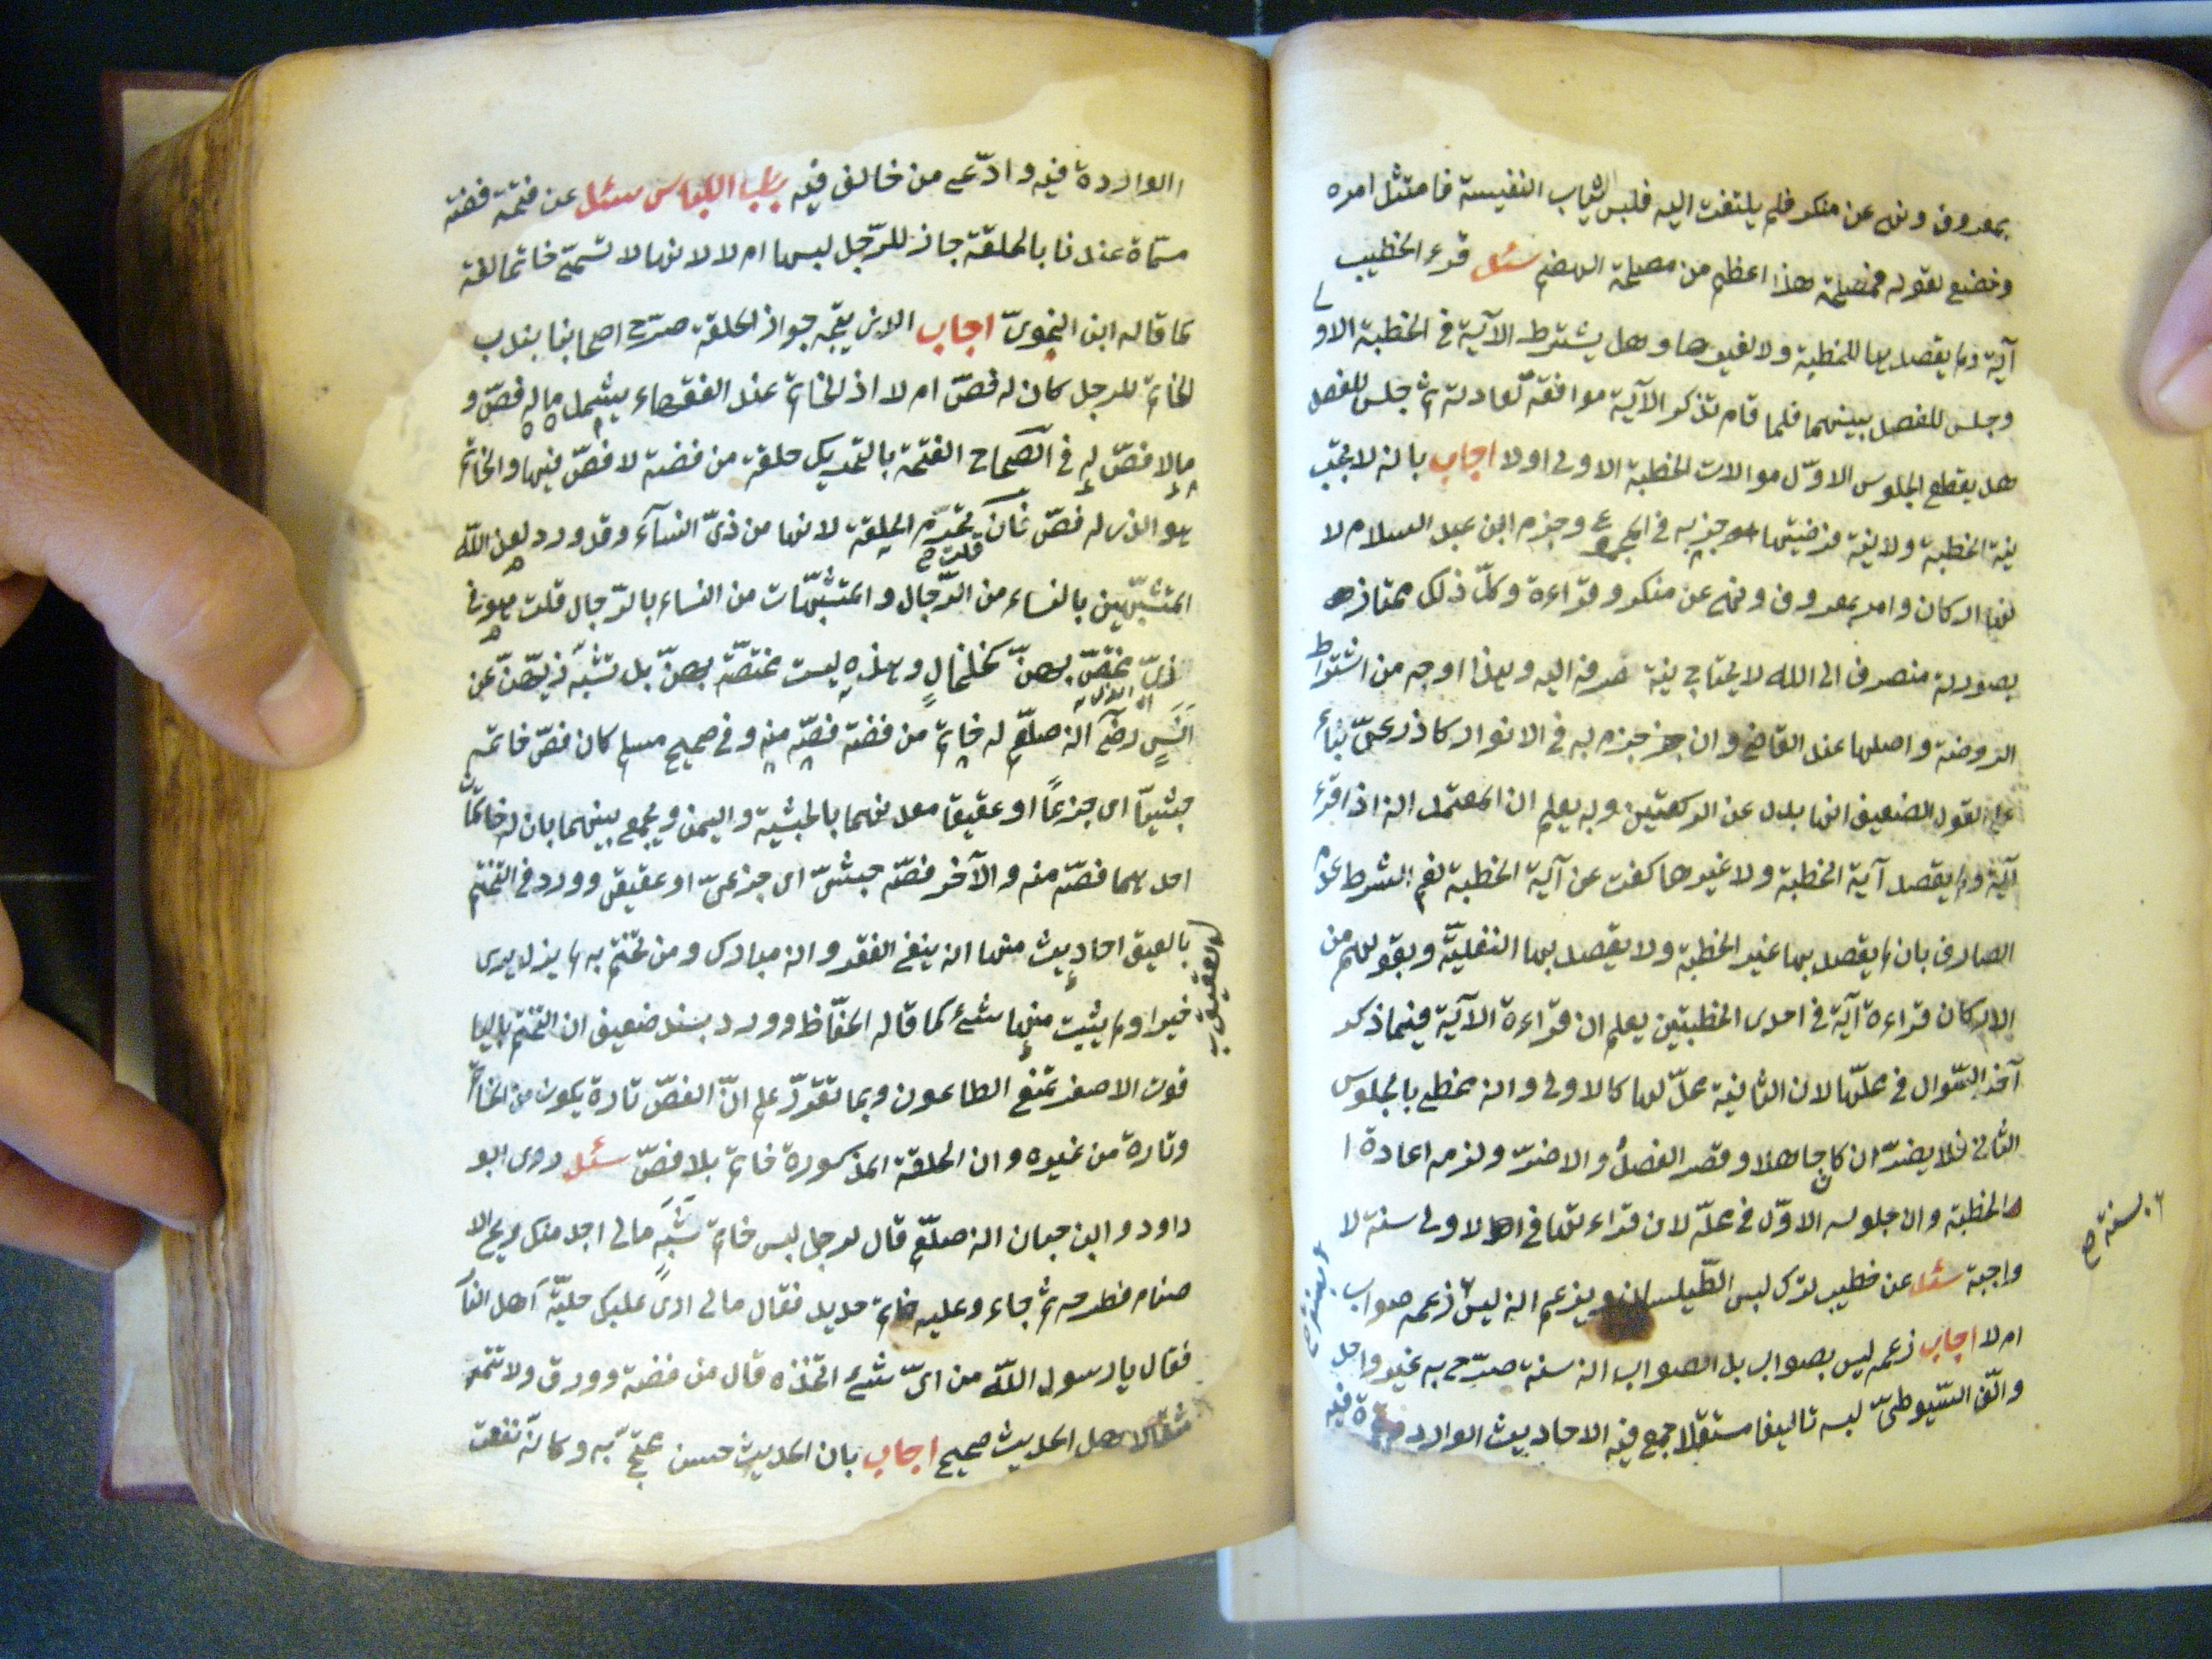 بمعروف ونهى عن منكر فلم يلتفت اليه فلبس الثياب النفيسة فامتثل امره
وخضع لقوله فمصلحة هذا اعظم من مصلحة الهضم سئل قرء الخطيب
آية ولم يقصد بها للخطبة ولا لغيرها وهل يشترط الآية في الخطبة الاولى
وجلس للفصل بينهما فلما قام تذكر الآية موافقة لعادته ثم جلس للفصل
هل يقطع الجلوس الاول موالات الخطبة الاولى اولا اجاب بانه لا تجب
نية الخطبة ولا نية فرضيتها جزم به في المجموع وجزم ابن عبد السلام لا
لنها اركان وامر بمعروف ونهى عن منكر وقراءة وكل ذلك ممتاز
بصورته منصرف الى الله لا يحتاج نية صرفه اليه وهذا اوجه من اشتراط
الروضة واصلها عند القاضي وان جزم به في الانوار كاذرعى بناء
على القول الضعيف انها بدل عن الركعتين وبه يعلم ان المعتمد انه اذا قرء
آية ولم يقصد آية الخطبة ولا غيرها كفت عن آية الخطبة نعم الشرط عدم
الصارف بان لم يقصد بها غير الخطبة ولا يقصد بها النفلية وبقولهم من
الاركان قراءة آية في احدى الخطبتين يعلم ان قراءة الآية فيما ذكر
آخر السؤال في محلها لان الثانية محل لها كالاولى وانه مخطئ بالجلوس
الثاني فلا يضر ان كان جاهلا وقصر الفصل والاضر ولزمه اعادة ا
لخطبة وان جلوسه الاول في محله لان قراءتها في الاولى سنة لا
واجبة سئل عن خطيب ترك لبس الطيلسان ويزعم انه ليس زعمه صواب
ام لا اجاب زعمه ليس بصواب بل الصواب انه سنة صرح به غير واحد
والف السيوطى لبسه تاليفا مستقلا جمع فيه الاحاديث الواردة فيه
بسنة صح
الواردة فيه وادعى من خالف فيه باب اللباس سئل عن فتخة فضة
مسماة عندنا بالحلقة جاز للرجل لبسها ام لا لانها لا تسمى خاتما لغة
كما قاله ابن النحوى اجاب الذى يتجه جواز الحلقة صرح اصحابنا بندب
الخاتم للرجل كان له فص ام لا اذ الخاتم عند الفقهاء يشمل ما له فص و
ما لا فص له في الصحاح الفتخة بالتحريك حلقة من فضة لا فص فيها والخاتم
هو الذى له فص فان تحرم الحلقة لانها من زى النساء وقد ورد لعن الله
قلت صح
المتشبهين بالنساء من الرجال والمتشبهات من النساء بالرجال قلت هو في
زى مختص بهن كخلخال وهذه ليست مختصة بهن بل تشبه زيهن عن
انس رض انه صلعم له خاتم من فضة فصه منه وفي صحيح مسلم كان فص خاتمه
حبشيا اى جزعا او عقيقا معدنهما بالحبشة واليمن ويجمع بينهما بان له خاتمان
احدهما فصه منه والآخر فصه حبشى اى جزعى او عقيق وورد في التختم
بالعقيق احاديث منها انه ينفى الفقر وانه مبارك ومن تختم به لم يزل يرى
بالعقيق
خيرا ولم يثبت منها شئ كما قاله الحفاظ وورد بسند ضعيف ان التختم باليا
قوت الاصفر تمنع الطاعون وبما تقرر علم ان الفص تارة يكون من الخاتم
وتارة من غيره وان الحلقة المذكورة خاتم بلا فص سئل روى ابو
داود وابن حبان انه صلعم قال لرجل لبس خاتم شبه مالى اجد منك ريح الا
صنام فطرحه ثم جاء وعليه خاتم حديد فقال مالى ارى عليك حلية اهل النار
فقال يا رسول الله من اى شئ اتخذه قال من فضة وورق ولا تتمه
مثقالا هل الحديث صحيح اجاب بان الحديث حسن محتج به وكانه نفعت